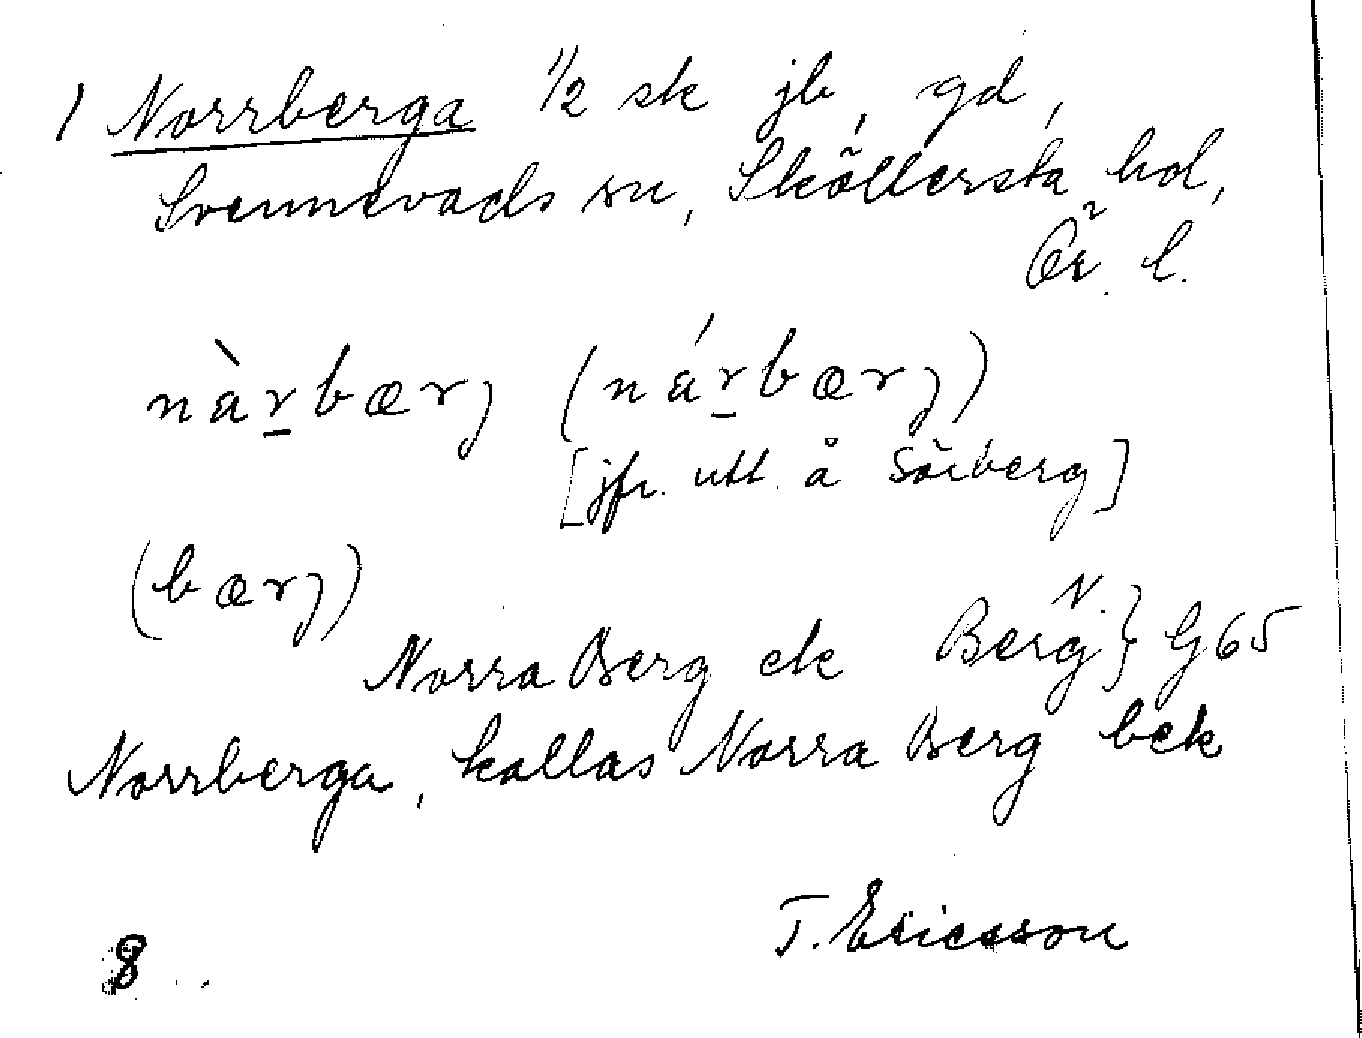 1 Norrberga 1/2 sk jb, gd,
Svennevads sn, Sköllersta hd,
Ör. l.
nàrbærj (nárbærj)
[jfr. utt. å Sörberg]
(bærj)
Norra Berg ek Berg N. } G 65
Norrberga, kallas Norra Berg bek
T. Ericsson
8